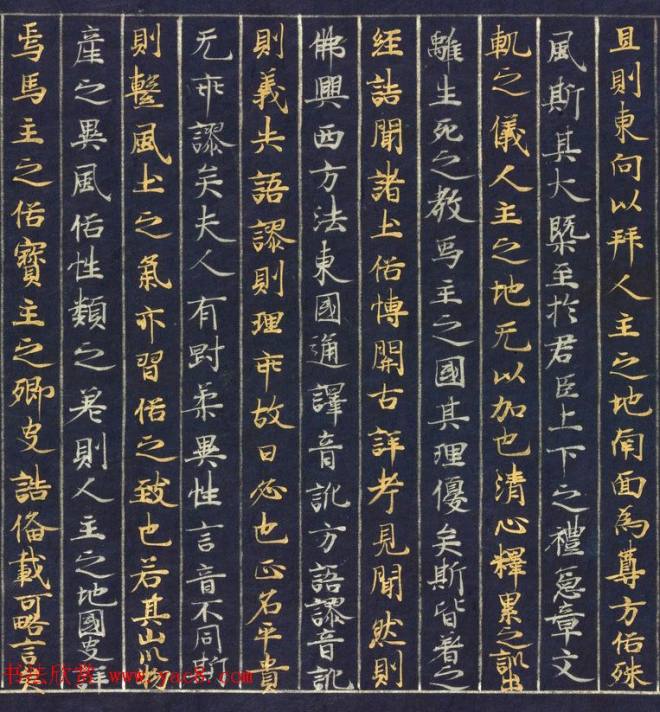 且則東向以拜人主之地南面為尊方俗殊
風斯其大槩至於君臣上下之禮憲章文
軌之儀人主之地无以加也清心釋累之訓出
離生死之教象主之國其理優矣斯皆著之
經誥聞諸土俗博開古詳考見聞然則
佛興西方法東國通譯音訛方語謬音訛
則義失語謬則理乖故曰必也正名乎貴
无乖謬矣夫人有剛柔異性言音不同斯
則繫風土之氣亦習俗之致也若其山川物
產之異風俗性類之差則人主之地國史詳
焉馬主之俗寶主之鄉史誥備載可略言矣
书法欣赏 www.yac8.com